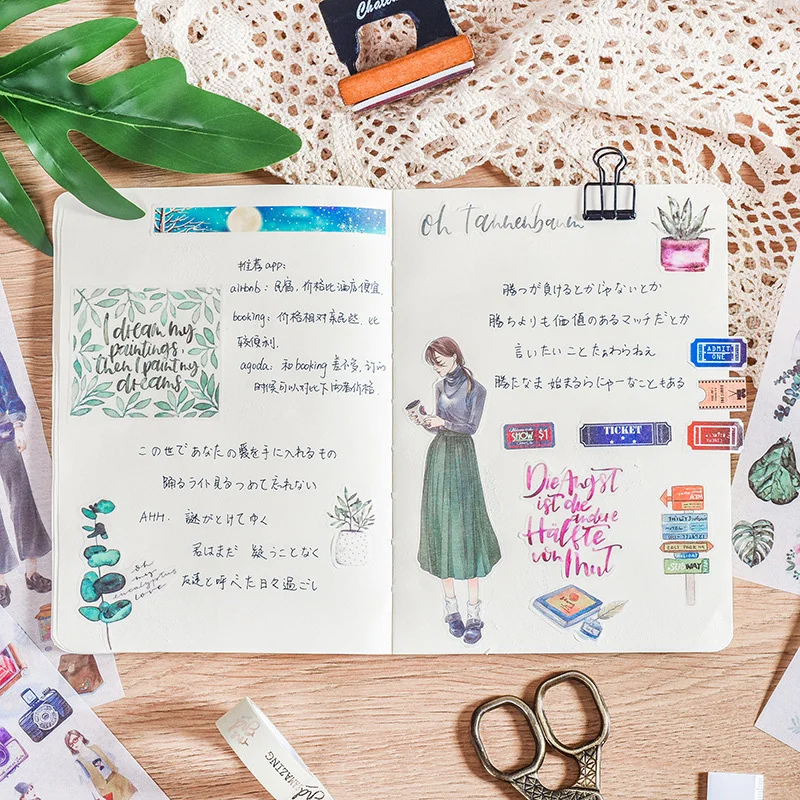 I dream my
paintings,
then I paint my
dreams
推荐app:
airbnb: 民宿,价格比酒店便宜
booking: 价格相对亲民些,比
较便利.
agoda: 和booking差不多,订的
时候可以对比下两者价格.
この世であなたの愛を手に入れるもの
踊るライト見るつめて忘れない
AHH. 謎がとけてゆく
君はまだ 疑うことなく
友達と呼べた日々過ごし
oh
my
eucalyptus
love
oh Tannenbaum
勝つが負けるとかじゃないとか
勝ちよりも価値のあるマッチだとか
言いたいことたぁわらねえ
勝たなま 始まるらにゃーなこともある
ADMIT
ONE
SHOW $1
TICKET
Die Angst
ist die
andere
Hälfte
von Mut
SUBWAY
AMAZING